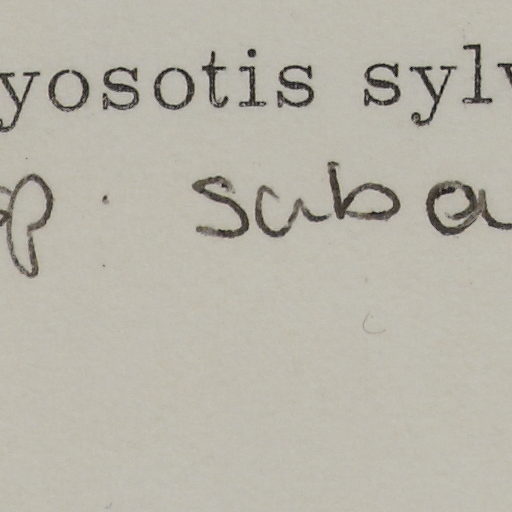 yosotis sylv
sp. suba